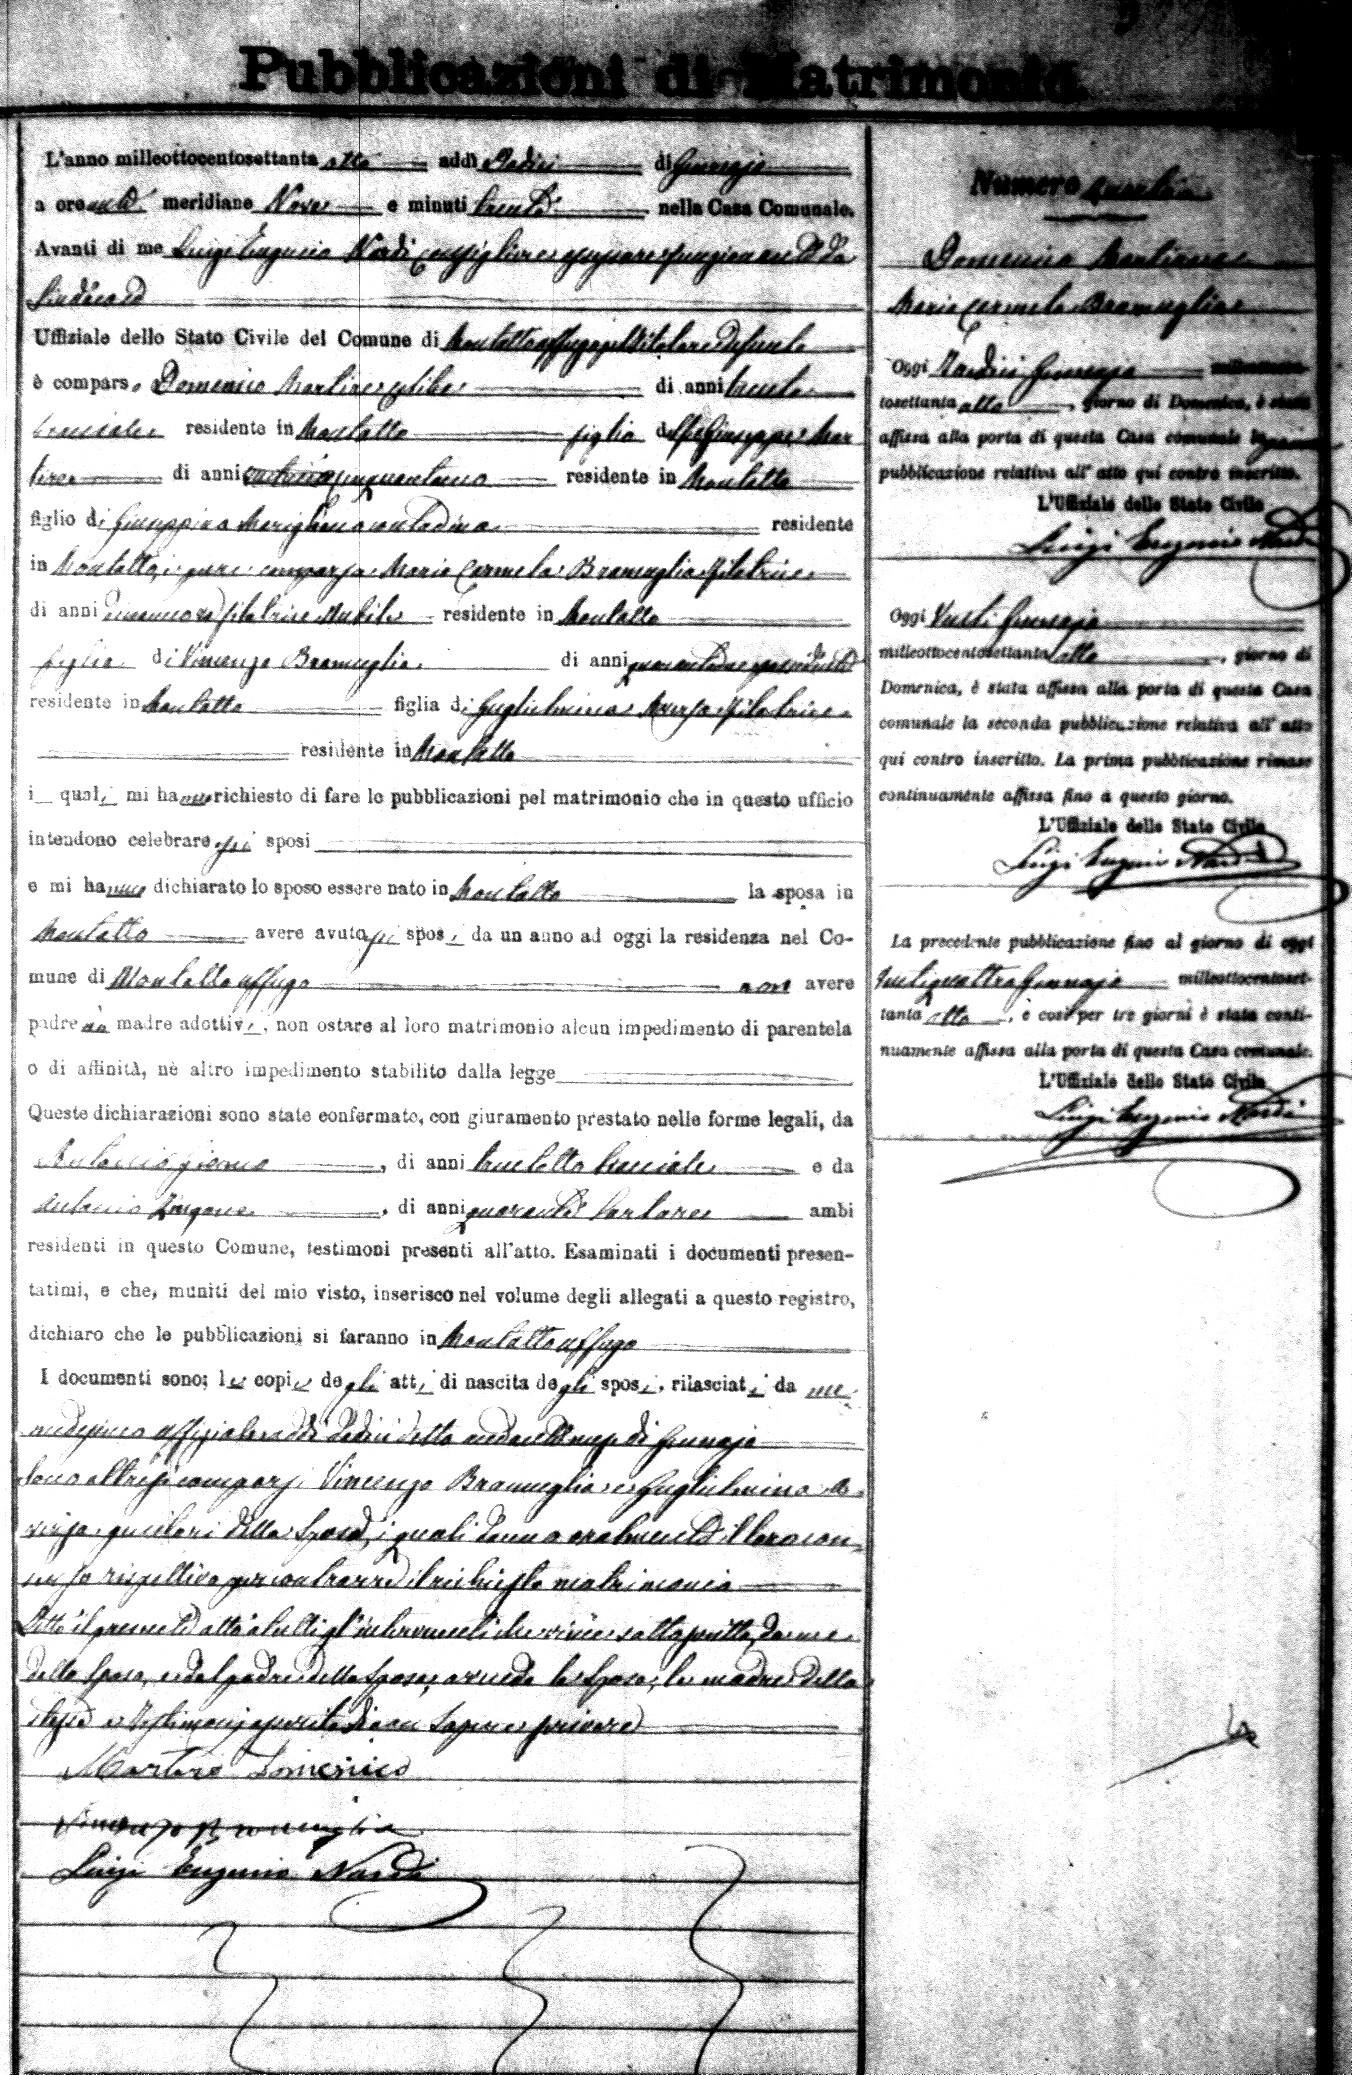 Pubblicazioni di Matrimonio
L'anno milleottocentosettanta otto addì Dodici di Gennajo
a ore anti meridiane Nove e minuti trenta nella Casa Comunale.
Avanti di me Luigi Eugenio Nardi Consigliere
Sindaco ed
Uffiziale dello Stato Civile del Comune di Montaltouffugo pel titolare defunto
è comparso Domenico Martire celibe di anni trenta
bracciale residente in Montalto figlio di Giuseppe Mar
tire di anni cinquantuno residente in Montalto
figlio di Giuseppina contadina residente
in Montalto, e pure comparsa Maria Carmela Bramuglia filatrice
di anni filatrice Nubile residente in Montalto
figlia di Vincenzo Bramuglia di anni
residente in Montalto figlia di Guglielmina Aversa filatrice
residente in Montalto
i quali mi hanno richiesto di fare le pubblicazioni pel matrimonio che in questo ufficio
intendono celebrare essi sposi
e mi hanno dichiarato lo sposo essere nato in Montalto la sposa in
Montalto avere avuto essi sposi da un anno ad oggi la residenza nel Co-
mune di Montaltouffugo non avere
padre nè madre adottivi, non ostare al loro matrimonio alcun impedimento di parentela
o di affinità, nè altro impedimento stabilito dalla legge
Queste dichiarazioni sono state confermate, con giuramento prestato nelle forme legali, da
Antonio Giorno, di anni trentotto bracciale e da
Antonio, di anni quaranta ambi
residenti in questo Comune, testimoni presenti all'atto. Esaminati i documenti presen-
tatimi, e che, muniti del mio visto, inserisco nel volume degli allegati a questo registro,
dichiaro che le pubblicazioni si faranno in Montaltouffugo
I documenti sono; le copie degli atti di nascita degli sposi, rilasciati da me
medesimo uffiziale addì dodici detto andante mese di Gennajo
Sono altresì comparsi Vincenzo Bramuglia e Guglielmina A-
versa genitori della Sposa, i quali danno oralmente il loro con-
senso rispettivo per contrarre il richiesto matrimonio
Letto il presente atto a tutti gl'intervenuti che viene sottoscritto da me
dello Sposo, e dal padre della Sposa; avendo la Sposa, la madre della
stessa e Testimonj asserito di non sapere scrivere
Martire Domenico
Vincenzo Bramuglia
Luigi Eugenio Nardi
Numero
Domenico Martire
Maria Carmela Bramuglia
Oggi Tredici Gennajo milleottocen-
tosettanta otto, giorno di Domenica, è stata
affissa alla porta di questa Casa comunale la prima
pubblicazione relativa all'atto qui contro inscritto.
L'Uffiziale dello Stato Civile
Luigi Eugenio Nardi
Oggi Venti Gennajo
milleottocentosettanta otto, giorno di
Domenica, è stata affissa alla porta di questa Casa
comunale la seconda pubblicazione relativa all'atto
qui contro inscritto. La prima pubblicazione rimase
continuamente affissa fino a questo giorno.
L'Uffiziale dello Stato Civile
Luigi Eugenio Nardi
La precedente pubblicazione fino al giorno di oggi
Ventiquattro Gennajo milleottocentoset-
tanta otto, e così per tre giorni è stata conti-
nuamente affissa alla porta di questa Casa comunale.
L'Uffiziale dello Stato Civile
Luigi Eugenio Nardi